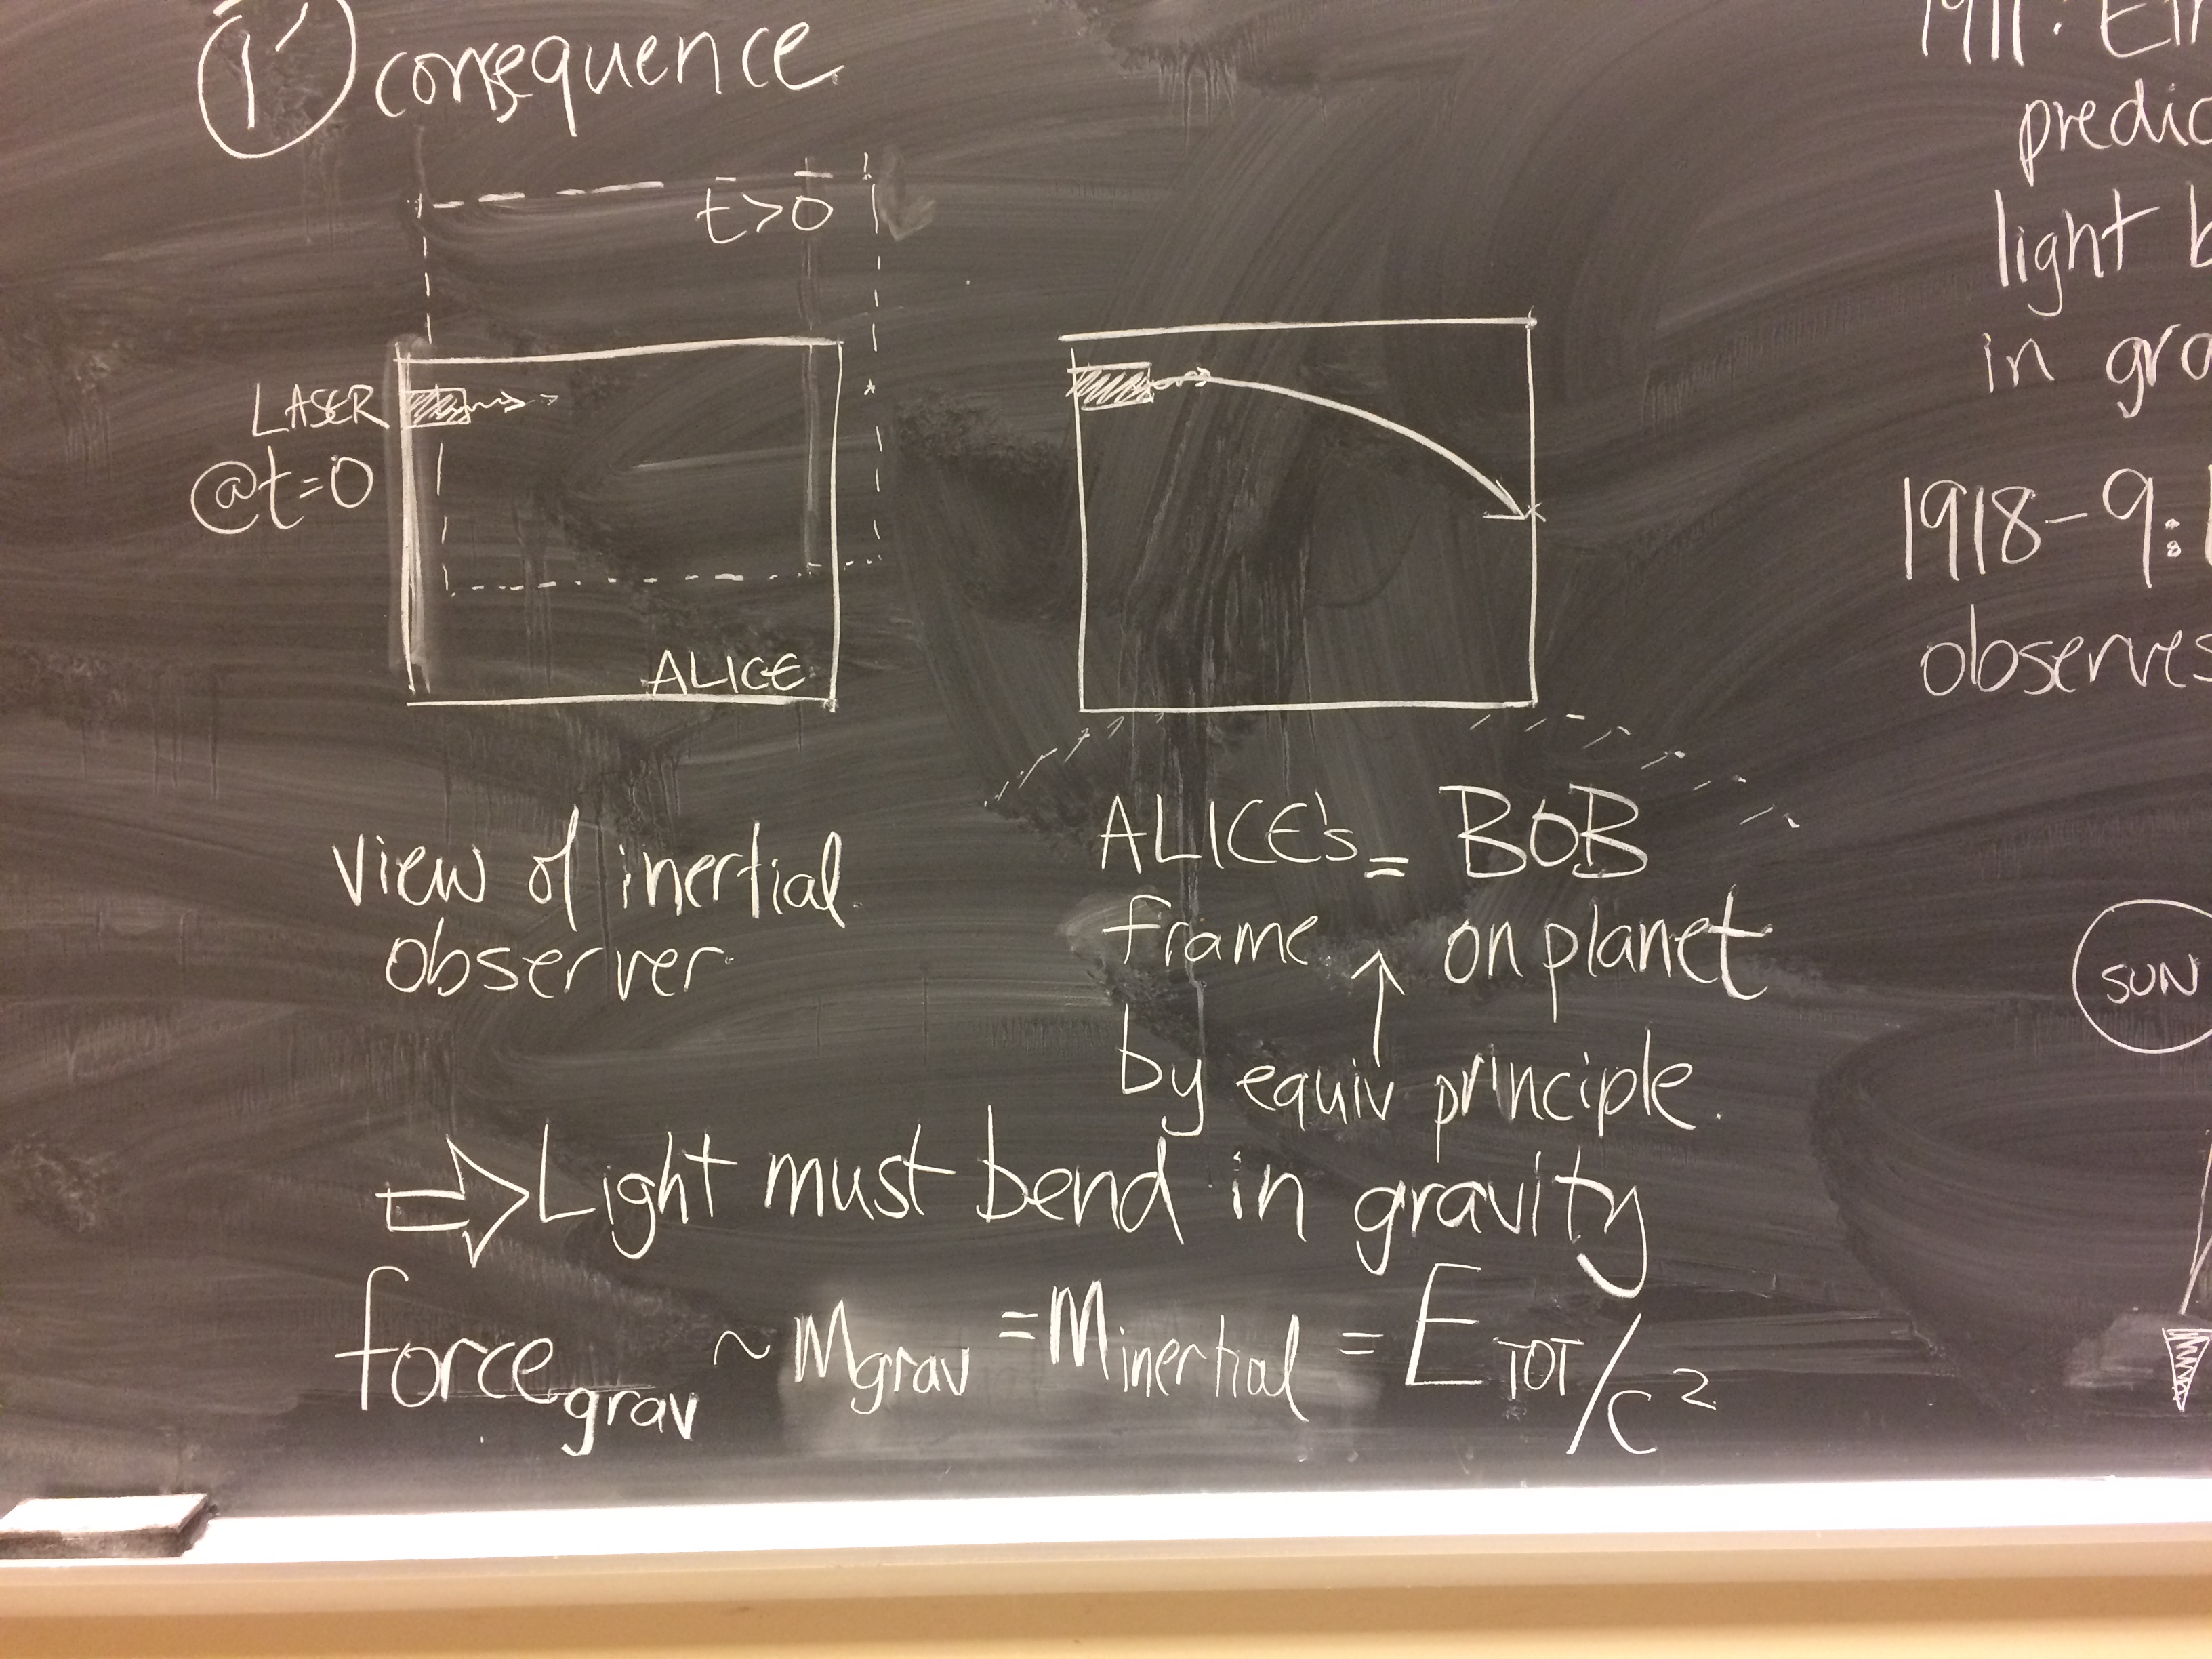 1' consequence
t>0
LASER
@t=0
ALICE
view of inertial
observer
ALICE's = BOB
frame ↑ on planet
by equiv principle.
⇒ Light must bend in gravity
force grav ~ m grav = m inertial = E TOT/c²
1911:
light
in
1918-9:
observes
SUN